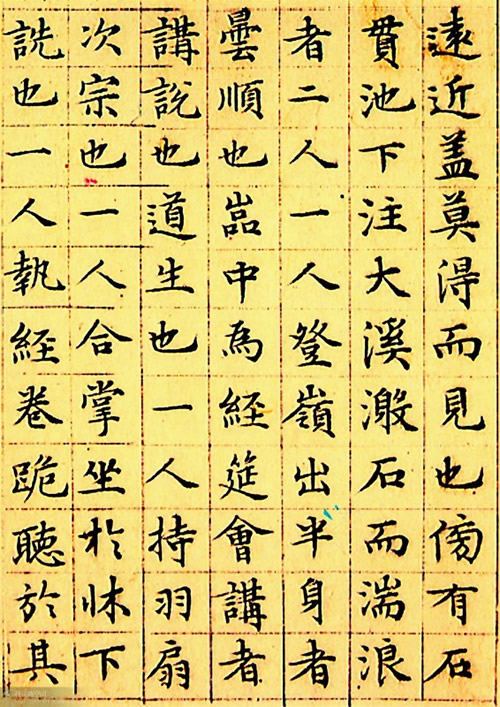 遠近盖莫得而見也傍有石
貫池下注大溪激石而湍浪
者二人一人登嶺出半身者
曇順也嵓中為經筵會講者
講說也道生也一人持羽扇
次宗也一人合掌坐於牀下
詵也一人執經卷跪聽於其